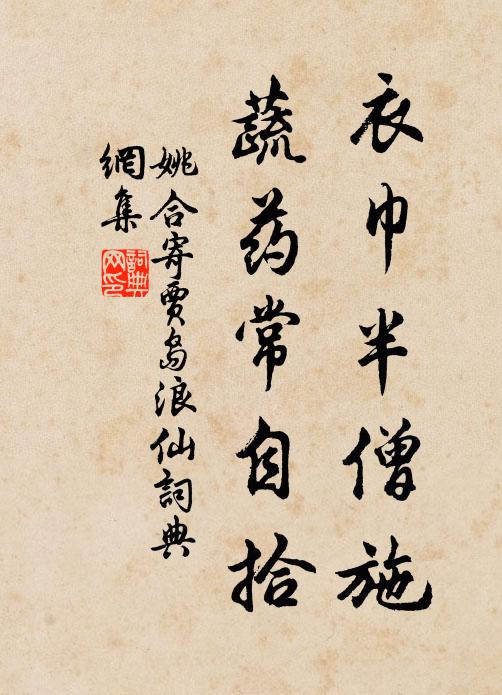 衣巾半僧施
蔬药常自拾
姚合寄贾岛浪仙詞典
網集
詞典
网印